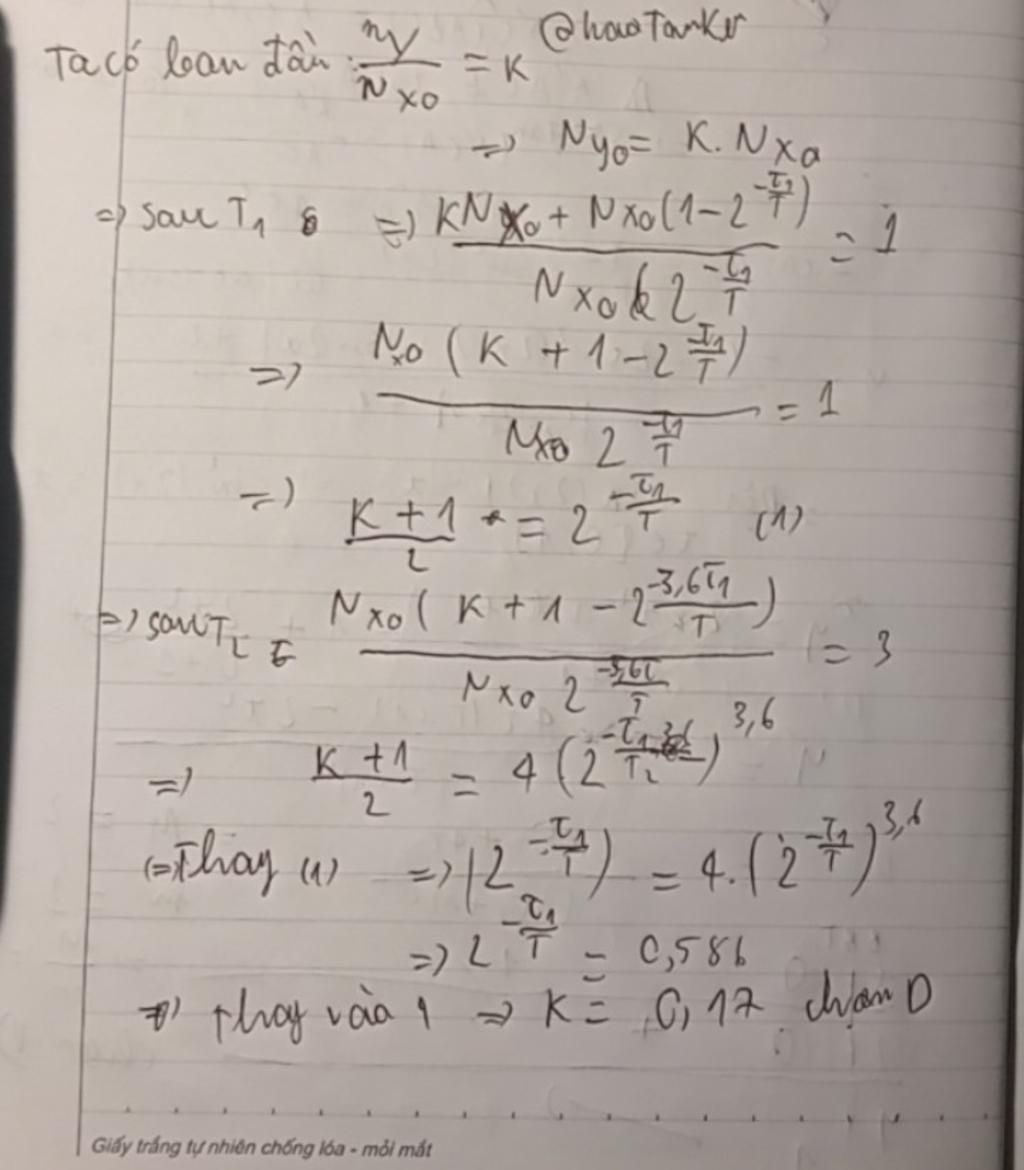 @haoTanKer
Ta có ban đầu: ny/N x0 = K
=> Ny0 = K. Nx0
=> sau T1 => KNx0 + Nx0(1-2^(-T1/T)) / Nx0 2^(-T1/T) = 1
=> Nx0 (K + 1 - 2^(-T1/T)) / Nx0 2^(-T1/T) = 1
=> K + 1 / 2 = 2^(-T1/T) (1)
=> sau T2 Nx0 (K + 1 - 2^(-3,6T1/T)) / Nx0 2^(-3,6T/T) = 3
=> K + 1 / 2 = 4 (2^(-T1/T2))^3,6
Thay (1) => (2^(-T1/T)) = 4. (2^(-T1/T))^3,6
=> 2^(-T1/T) = 0,586
=> thay vào 1 => K = 0,17 chọn D
Giấy trắng tự nhiên chống lóa - mỏi mắt